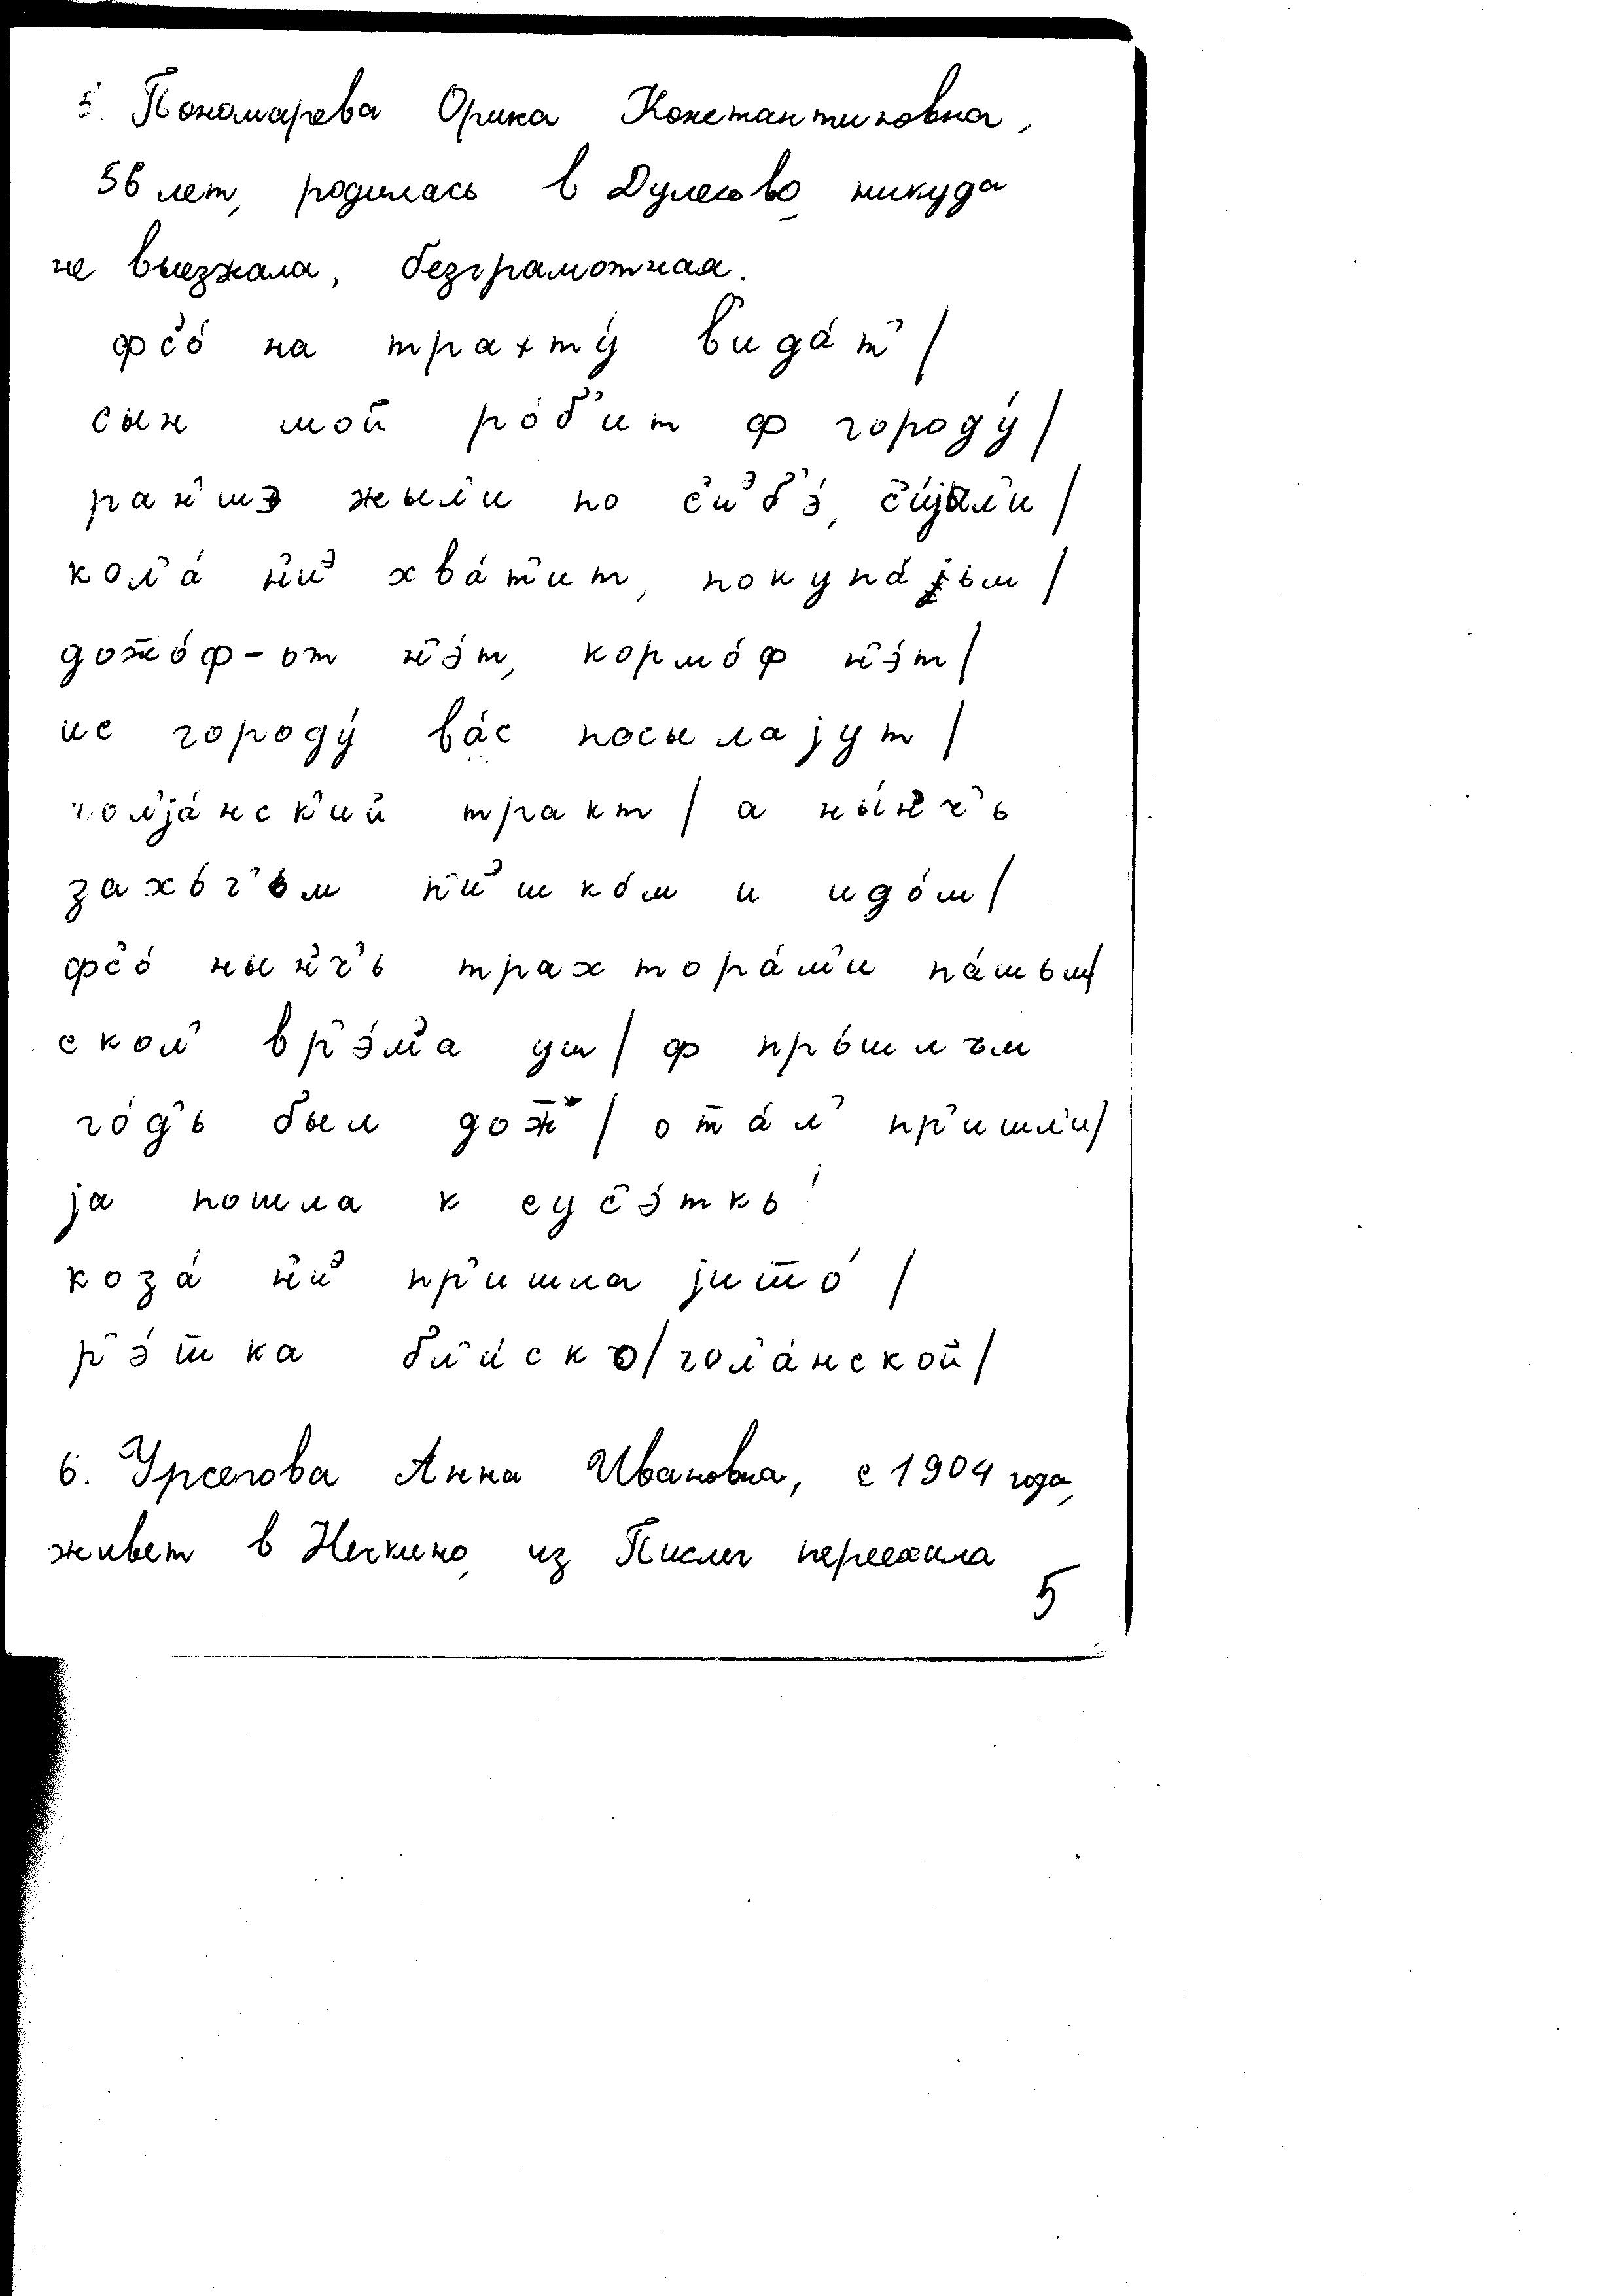 5. Пономарева Орика Константиновна,
56 лет, родилась в Дулесово, никуда
не выезжала, безграмотная.
фс’о́ на трахту́ в’ида́т’ /
сын мой ро́б’ит ф городу́ /
ран’шэ жыл’и по с’иᵊб’э́, с’и́јал’и /
кол’а́ н’иᵊ хва́т’ит, покупа́јьм /
дож̄о́ф-от н’э́т, кормо́ф н’э́т /
ис городу́ ва́с посылајут /
гол’ја́нск’ий тракт / а ны́н’ч’ь
захо́ч’ьм п’иᵊшко́м и идо́м /
фс’о́ нын’ч’ь трахтора́м’и па́шьм /
скол’ вр’э́м’а уш / ф про́шлъм
го́д’ь был дож̄’ / от̄а́л’ пр’ишл’и /
ја пошла к сус’э́ткь /
коза́ н’иᵊ пр’ишла јиш̄о́ /
р’э́ш̄ка бл’и́ско / гол’а́нской /
6. Урсегова Анна Ивановна, с 1904 года,
живет в Нечкино, из Пислег переехала
5